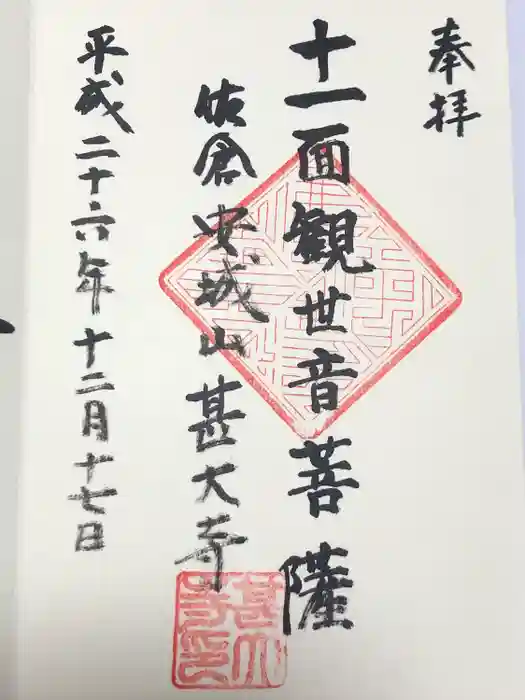 奉拝
十一面観世音菩薩
佐倉 安城山 甚大寺
平成二十六年十二月十七日
甚大寺印